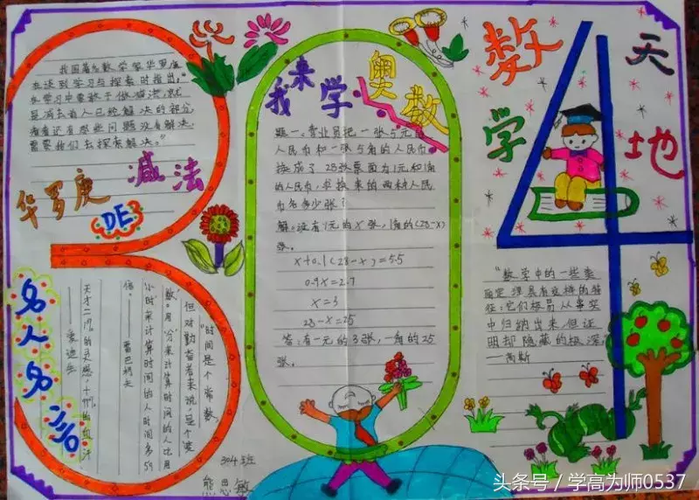 我国著名数学家华罗庚
在谈到学习与探索时指出:"
在学习中要敢于做减法,就
是减去前人已经解决的部分,
看看还有那些问题没有解决,
需要我们去探索解决。"
华罗庚
DE
减法
名人名言
"时间是个常数,
但对勤奋者来说,是个'变
数'。用'分'来计算时间的人比用
'小时'来计算时间的人时间多59
倍。
——雷巴柯夫
天才=1%的灵感,+99%的血汗
——爱迪生
304班
熊思敏
我来学
奥数
题一、营业员把一张5元的
人民币和一张5角的人民币
换成了28张票面为1元和1角
的人民币,求换来的两种人民
币各多少张?
解:设有1元的x张,1角的(28-x)
张。
x+0.1(28-x)=5.5
0.9x=2.7
x=3
28-x=25
答:有一元的3张,一角的25
张。
数学
天地
"数学中的一些美
丽定理具有这样的特
性:它们极易从事实
中归纳出来,但证
明却隐藏的极深。
—高斯
头条号 / 学高为师0537